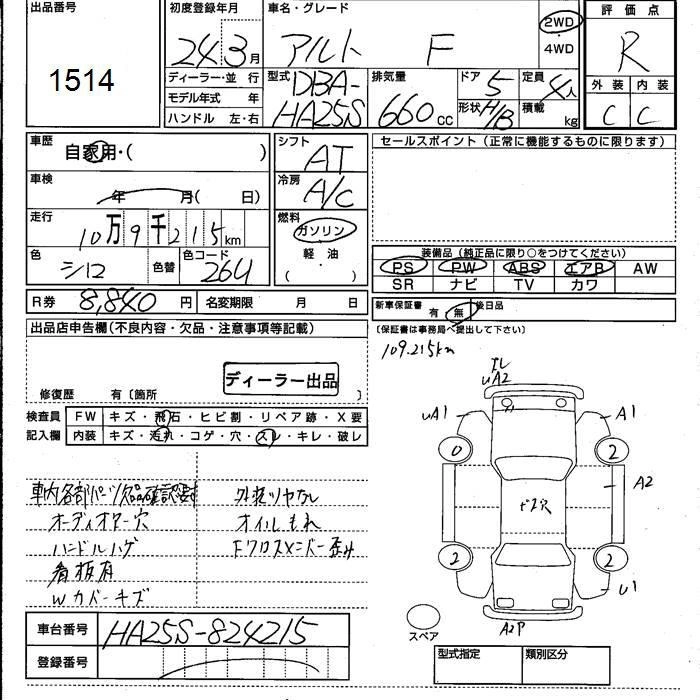 出品番号
1514
初度登録年月
24 3月
車名・グレード
アルト F
2WD
・
4WD
評価点
R
外装 内装
C C
ディーラー・並行
モデル年式 年
ハンドル 左・右
型式
DBA-
HA25S
排気量
660cc
ドア
5
定員
4人
形状 H/B
積載 kg
車歴
自家用・( )
車検
年 月( 日)
走行
10万9千215km
色
シロ
色替
色コード
26U
シフト
AT
冷房
A/C
燃料
ガソリン
軽・油
( )
セールスポイント (正常に機能するものに限ります)
装備品 (純正品に限り○をつけてください)
PS PW ABS エアB AW
SR ナビ TV カワ
R券 8,840円 名変期限 月 日
新車保証書 有 無 後日品
(保証書は事務局へ提出して下さい)
109.215km
出品店申告欄(不良内容・欠品・注意事項等記載)
ディーラー出品
修復歴 有〔箇所 〕
検査員
記入欄
FW キズ・飛石・ヒビ割・リペア跡・X要
内装 キズ・汚れ・コゲ・穴・スレ・キレ・破レ
車内各部パーツ欠品確認要す
オーディオマー穴
ハンドルハゲ
看板有
Wカバーキズ
外装ツヤなし
オイルもれ
Fクロスメンバー歪み
uA2
uA1
A1
0
2
A2
2
2
U1
A2P
スペア
車台番号 HA25S-824215
登録番号
型式指定 類別区分